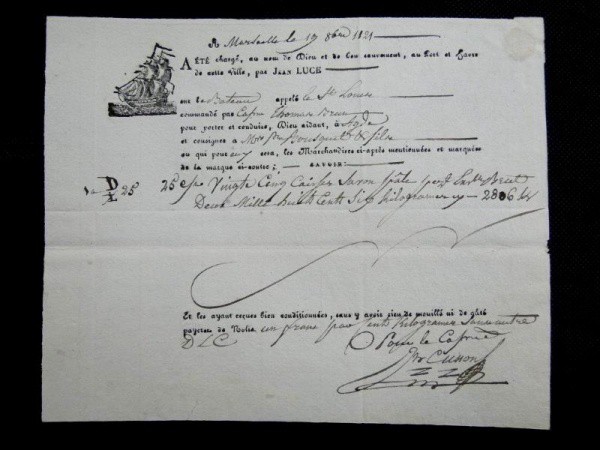 A Marseille le 19 8bre 1821
A ÉTÉ chargé, au nom de Dieu et de bon sauvement, au Port et Havre
de cette Ville, par JEAN LUCE
sur le Bateau appelé le St Louis
commandé par Capne Thomas
pour porter et conduire, Dieu aidant, à Agde
et consigner à Mrs Bousquet & fils
ou qui pour eux sera, les Marchandises ci-après mentionnées et marquées
de la marque ci-contre;
SAVOIR:
D
L
25
25 Cses Vingt Cinq Caisses Savon pâle
Deux Mille huit Cents Six Kilogrammes 2806 k
Et les ayant reçues bien conditionnées, sans y avoir rien de mouillé ni de gâté
payerez de Nolis un franc par Cent Kilogrammes
D L C
Pour le Capne
Cusson